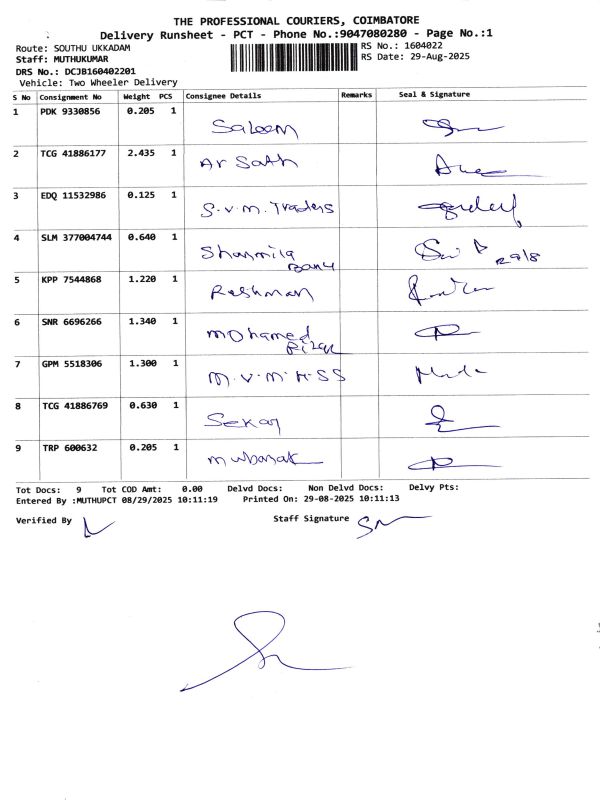 THE PROFESSIONAL COURIERS, COIMBATORE
Delivery Runsheet - PCT - Phone No.:9047080280 - Page No.:1
Route: SOUTHU UKKADAM
RS No.: 1604022
Staff: MUTHUKUMAR
RS Date: 29-Aug-2025
DRS No.: DCJB160402201
Vehicle: Two Wheeler Delivery
S No Consignment No Weight PCS Consignee Details Remarks Seal & Signature
1 PDK 9330856 0.205 1 Saleem
2 TCG 41886177 2.435 1 Ar Sath
3 EDQ 11532986 0.125 1 S.V.M. Traders
4 SLM 377004744 0.640 1 Sharmila Banu 29/8
5 KPP 7544868 1.220 1 Reshman
6 SNR 6696266 1.340 1 Mohamed
7 GPM 5518306 1.300 1 M.V.M.H.SS
8 TCG 41886769 0.630 1 Sekar
9 TRP 600632 0.205 1 Mubarak
Tot Docs: 9 Tot COD Amt: 0.00 Delvd Docs: Non Delvd Docs: Delvy Pts:
Entered By :MUTHUPCT 08/29/2025 10:11:19 Printed On: 29-08-2025 10:11:13
Verified By Staff Signature